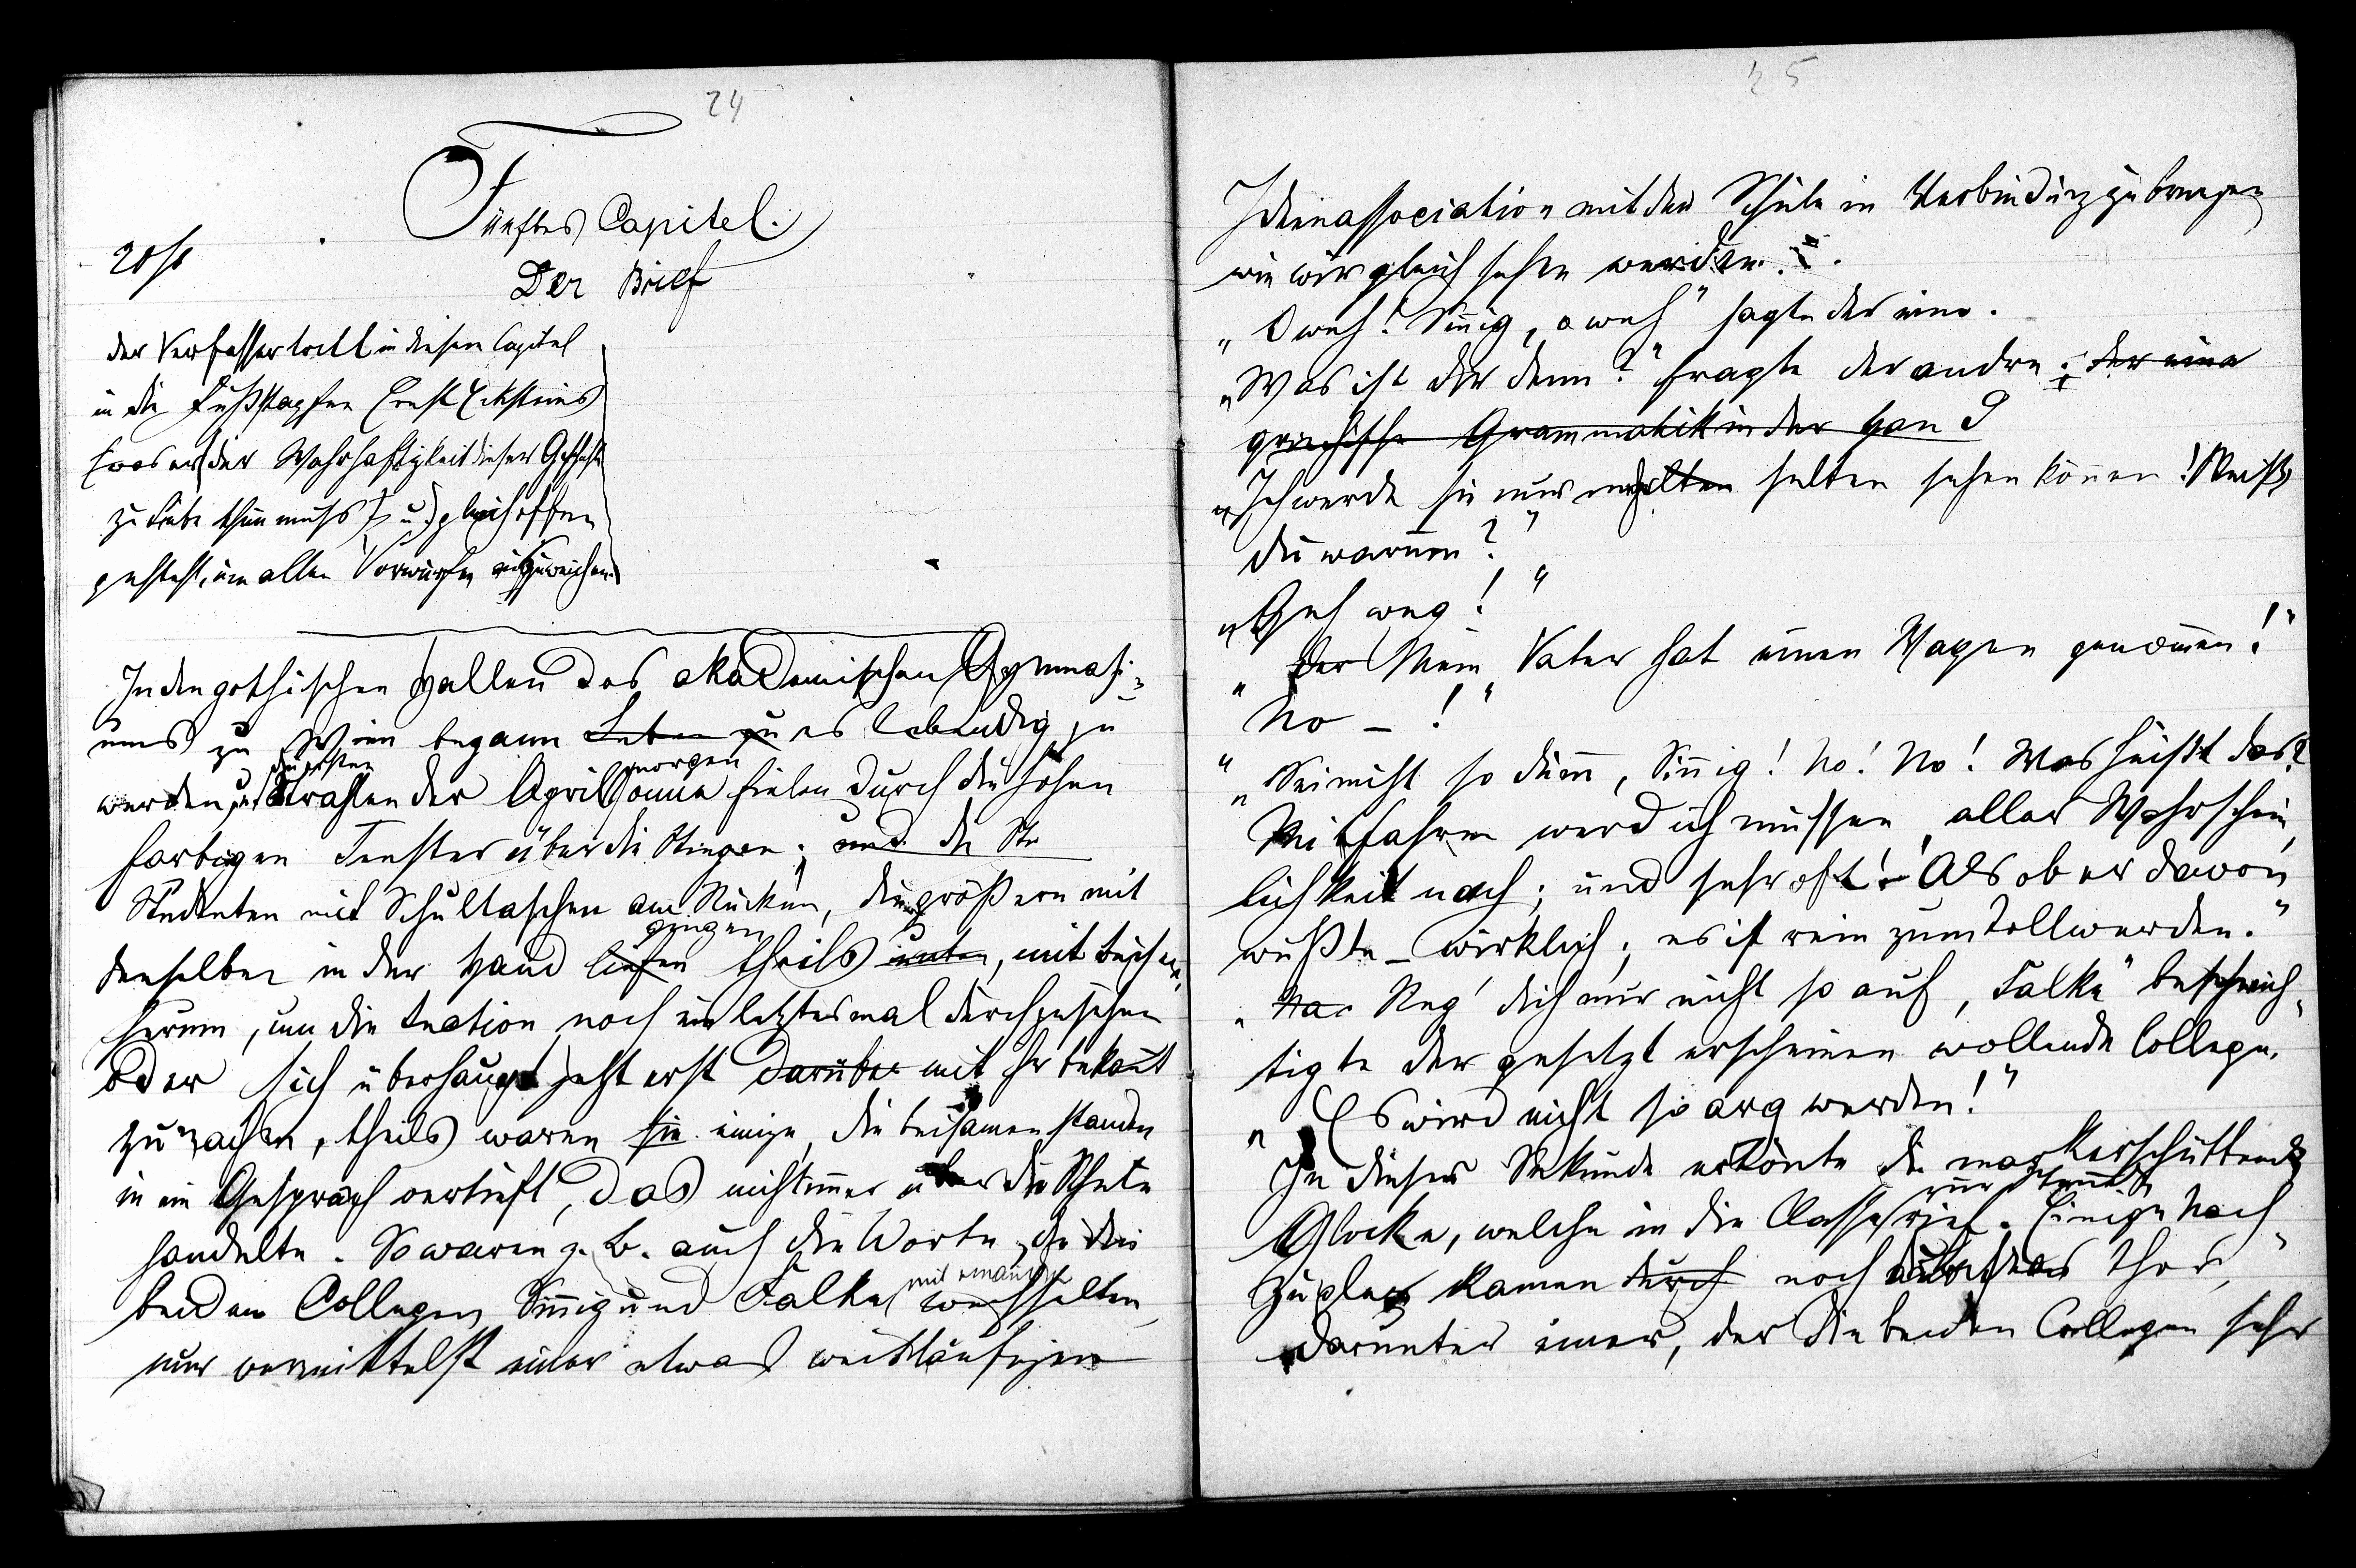 24
Fünftes Capitel.
Der Brief
20/1
der Verfasser tritt in diesem Capitel
in die Fußstapfen Ernst Ecksteins
(was er der Wahrhaftigkeit dieser Geschichte
zu Liebe thun muß) u. gleich offen
gesteht, um allen Vorwürfen auszuweichen.
In den gothischen Hallen des akademischen Gymnasi-
ums zu Wien begann Leben zu es lebendig zu
die ersten morgen
werden, u. Strahlen der Aprilsonne fielen durch die hohen
farbigen Fenster über die Stiegen; und die Ste
Studenten mit Schultaschen am Rücken, die größern mit
gingen
denselben in der Hand liefen theils unten, mit Büchern
herum, um die Lection noch ein letztesmal durchzusehen
oder sich überhaupt jetzt erst darüber mit ihr bekant
zu machen, theils waren sie einige, die beisamen standen
in ein Gespräch vertieft, das nicht immer über die Schule
handelte. So waren z. B. auch die Worte, die die
mit einander
beiden Collegen Sinnig und Falke wechselten,
nur vermittelst einer etwas weitläufigen
25
Ideenassociation mit der Schule in Verbindung zu bringen
wie wir gleich sehen werden.
„O weh! Sinnig, o weh" sagte der eine.
„Was ist dir denn?" fragte der andre; der eine
griechische Grammatik in der Han d
„Ich werde sie nur selten sehen können! Weißt
du warum?"
„Geh weg!"
„Der Mein Vater hat einen Wagen genomen!"
„No – !"
„Sei nicht so dum, Sinnig! No! No! Was heißt das?
Mitfahren werd ich müssen, aller Wahrschein
lichkeit nach; und sehr oft! Als ob er davon
wußte – wirklich; es ist rein zum Tollwerden."
„Na Reg' dich nur nicht so auf, Falke" beschwich-
tigte der gesetzt erscheinen wollende College.
„Es wird nicht so arg werden!"
In dieser Sekunde ertönte die markerschütternde
zur Stunde
Glocke, welche in die Classe rief. Einige Nach-
zügler kamen durch noch durch das Thor,
darunter einer, der die beiden Collegen sehr